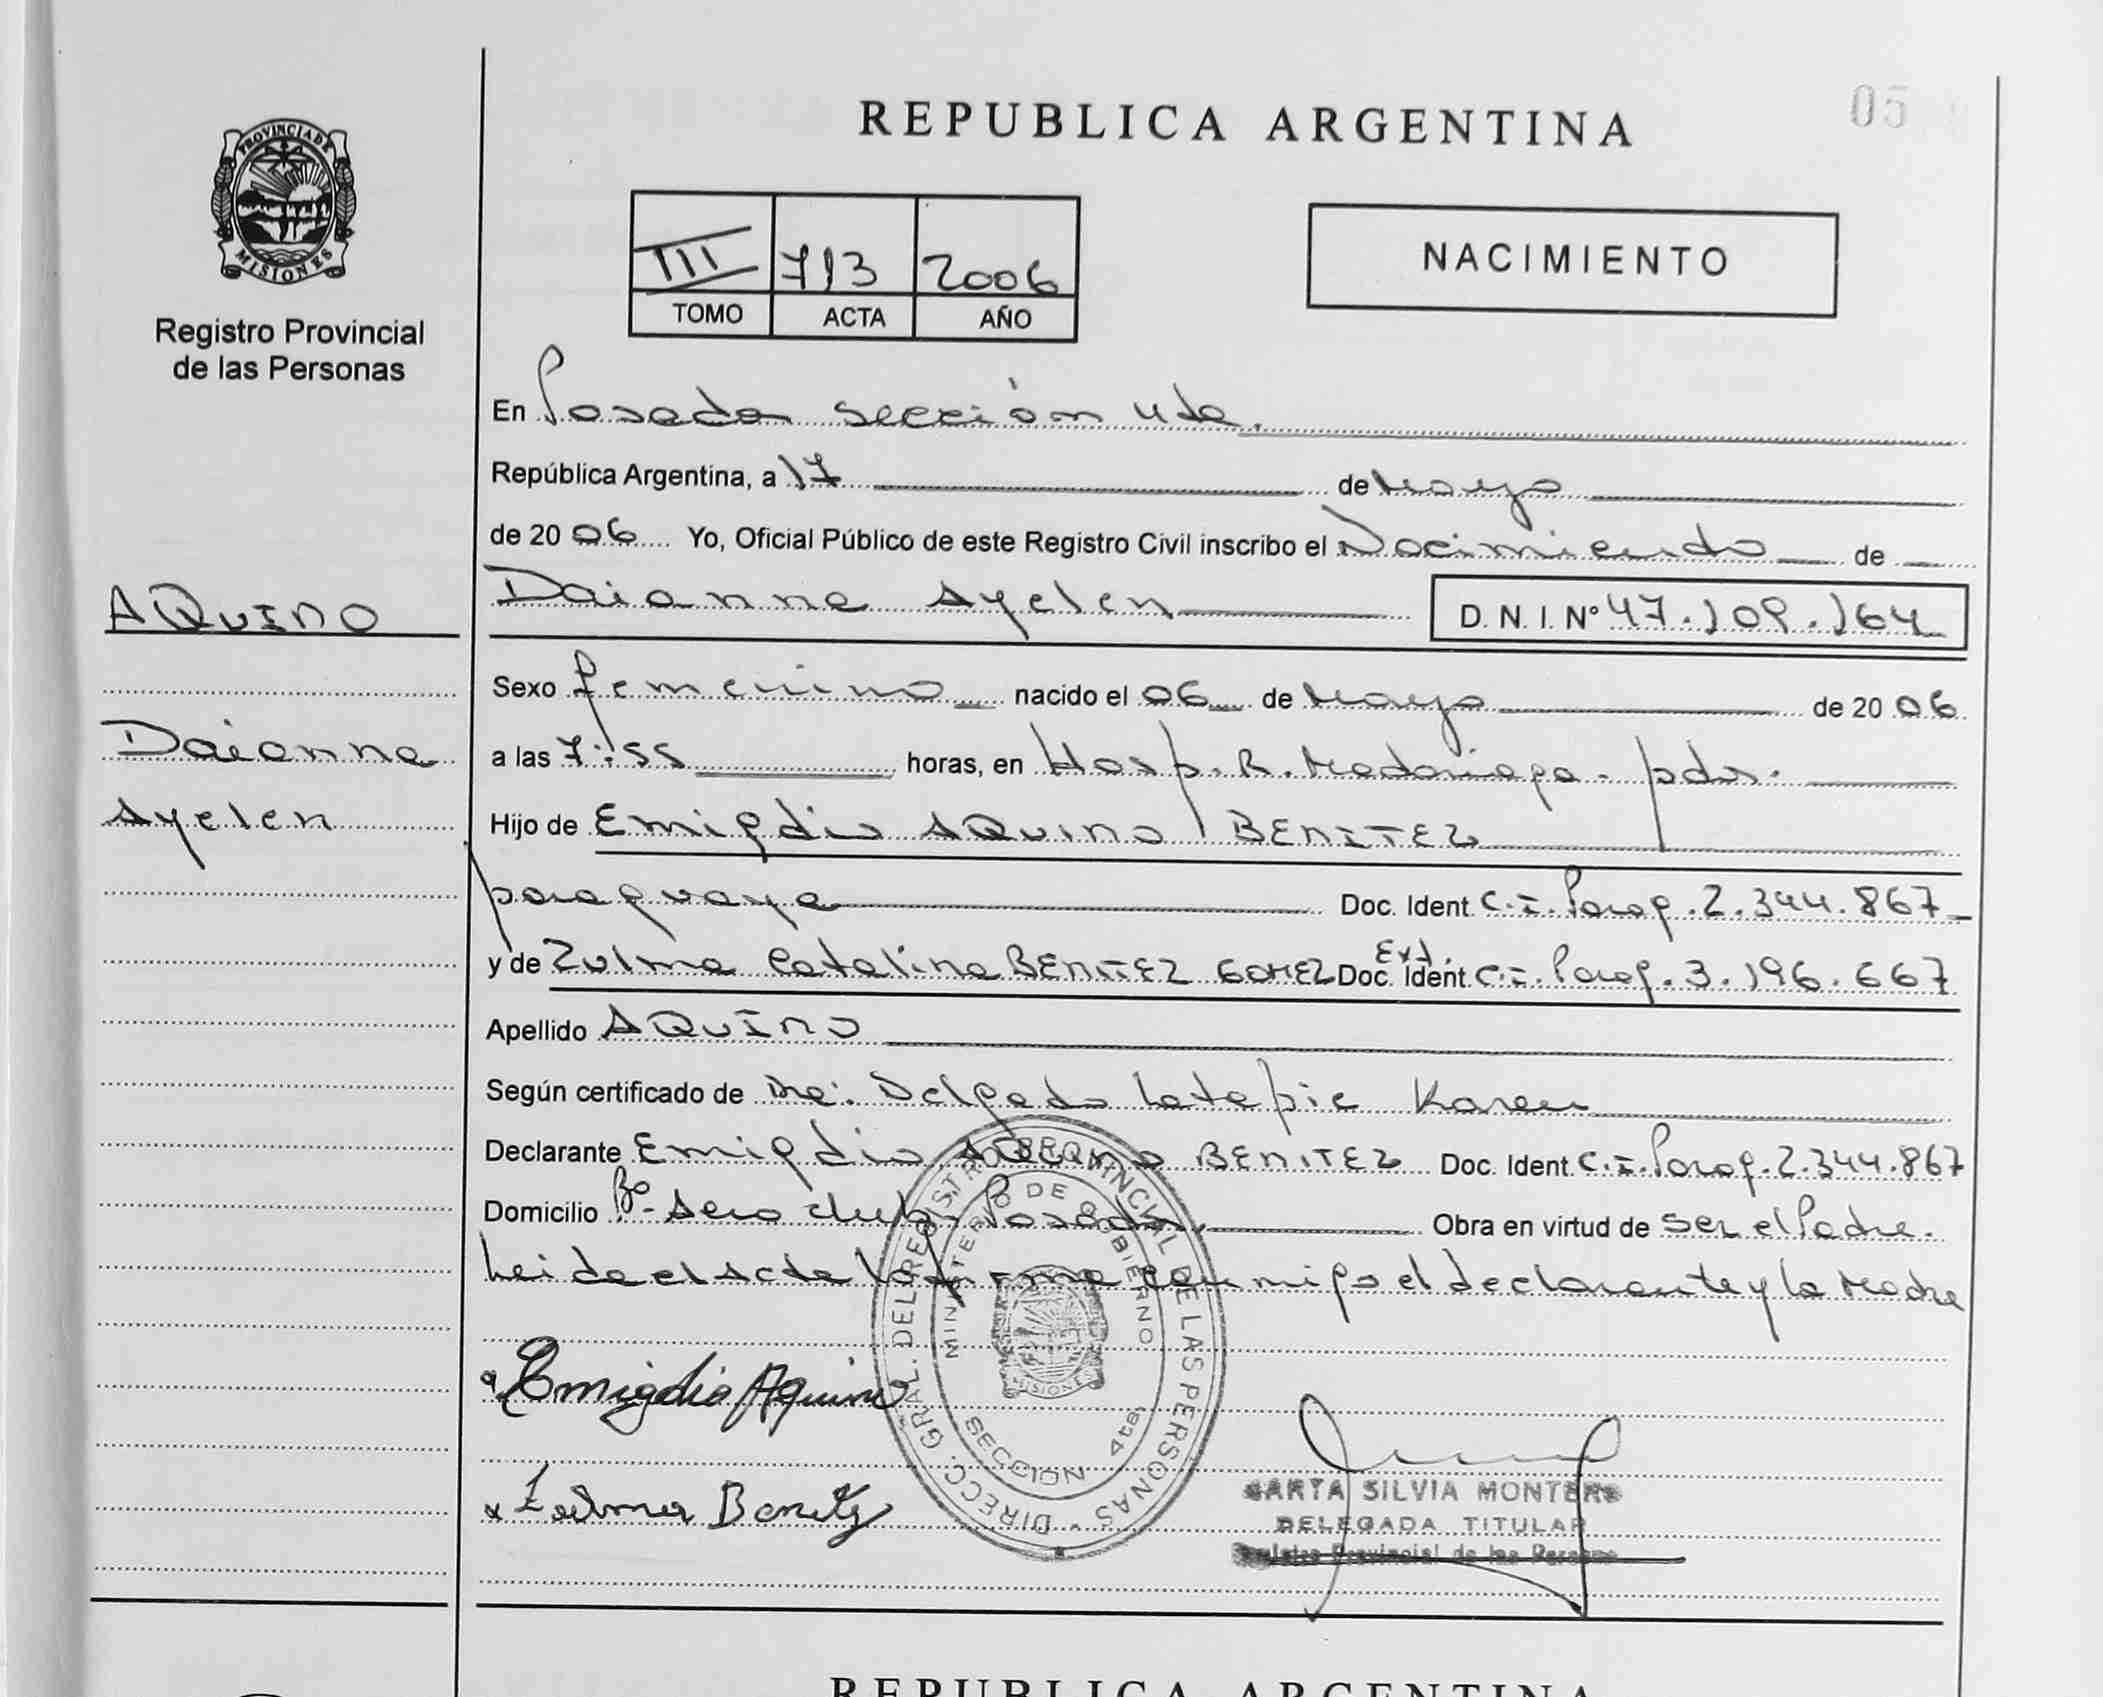 REPUBLICA ARGENTINA
05
PROVINCIA DE
MISIONES
Registro Provincial
de las Personas
III 713 2006
TOMO ACTA AÑO
NACIMIENTO
En Posadas sección 4ta.
República Argentina, a 17 de Mayo
de 2006 Yo, Oficial Público de este Registro Civil inscribo el Nacimiento de
AQUINO
Daianna Ayelen D. N. I. Nº 47.109.164
Sexo femenino nacido el 06 de Mayo de 2006
Daianna
a las 7:55 horas, en Hosp. R. Madariaga. pdas.
Ayelen
Hijo de Emigdio AQUINO BENITEZ
paraguaya Doc. Ident C.I. Parag. 2.344.867
Ext.
y de Zulma Catalina BENITEZ GOMEZ Doc. Ident. C.I. Parag. 3.196.667
Apellido AQUINO
Según certificado de Dra: Delgado Latapie Karen
Declarante Emigdio AQUINO BENITEZ Doc. Ident. C.I. Parag. 2.344.867
Domicilio Bº Aero club, Posadas. Obra en virtud de ser el Padre.
Leida el Acta la firma conmigo el declarante y la Madre
Emigdio Aquino
Zulma Benitez
DIRECC. GRAL. DEL REGISTRO PROVINCIAL DE LAS PERSONAS
MINISTERIO DE GOBIERNO
MISIONES
SECCION 4ta.
SILVIA MONTERO
DELEGADA TITULAR
Provincial de las Personas
REPUBLICA ARGENTINA